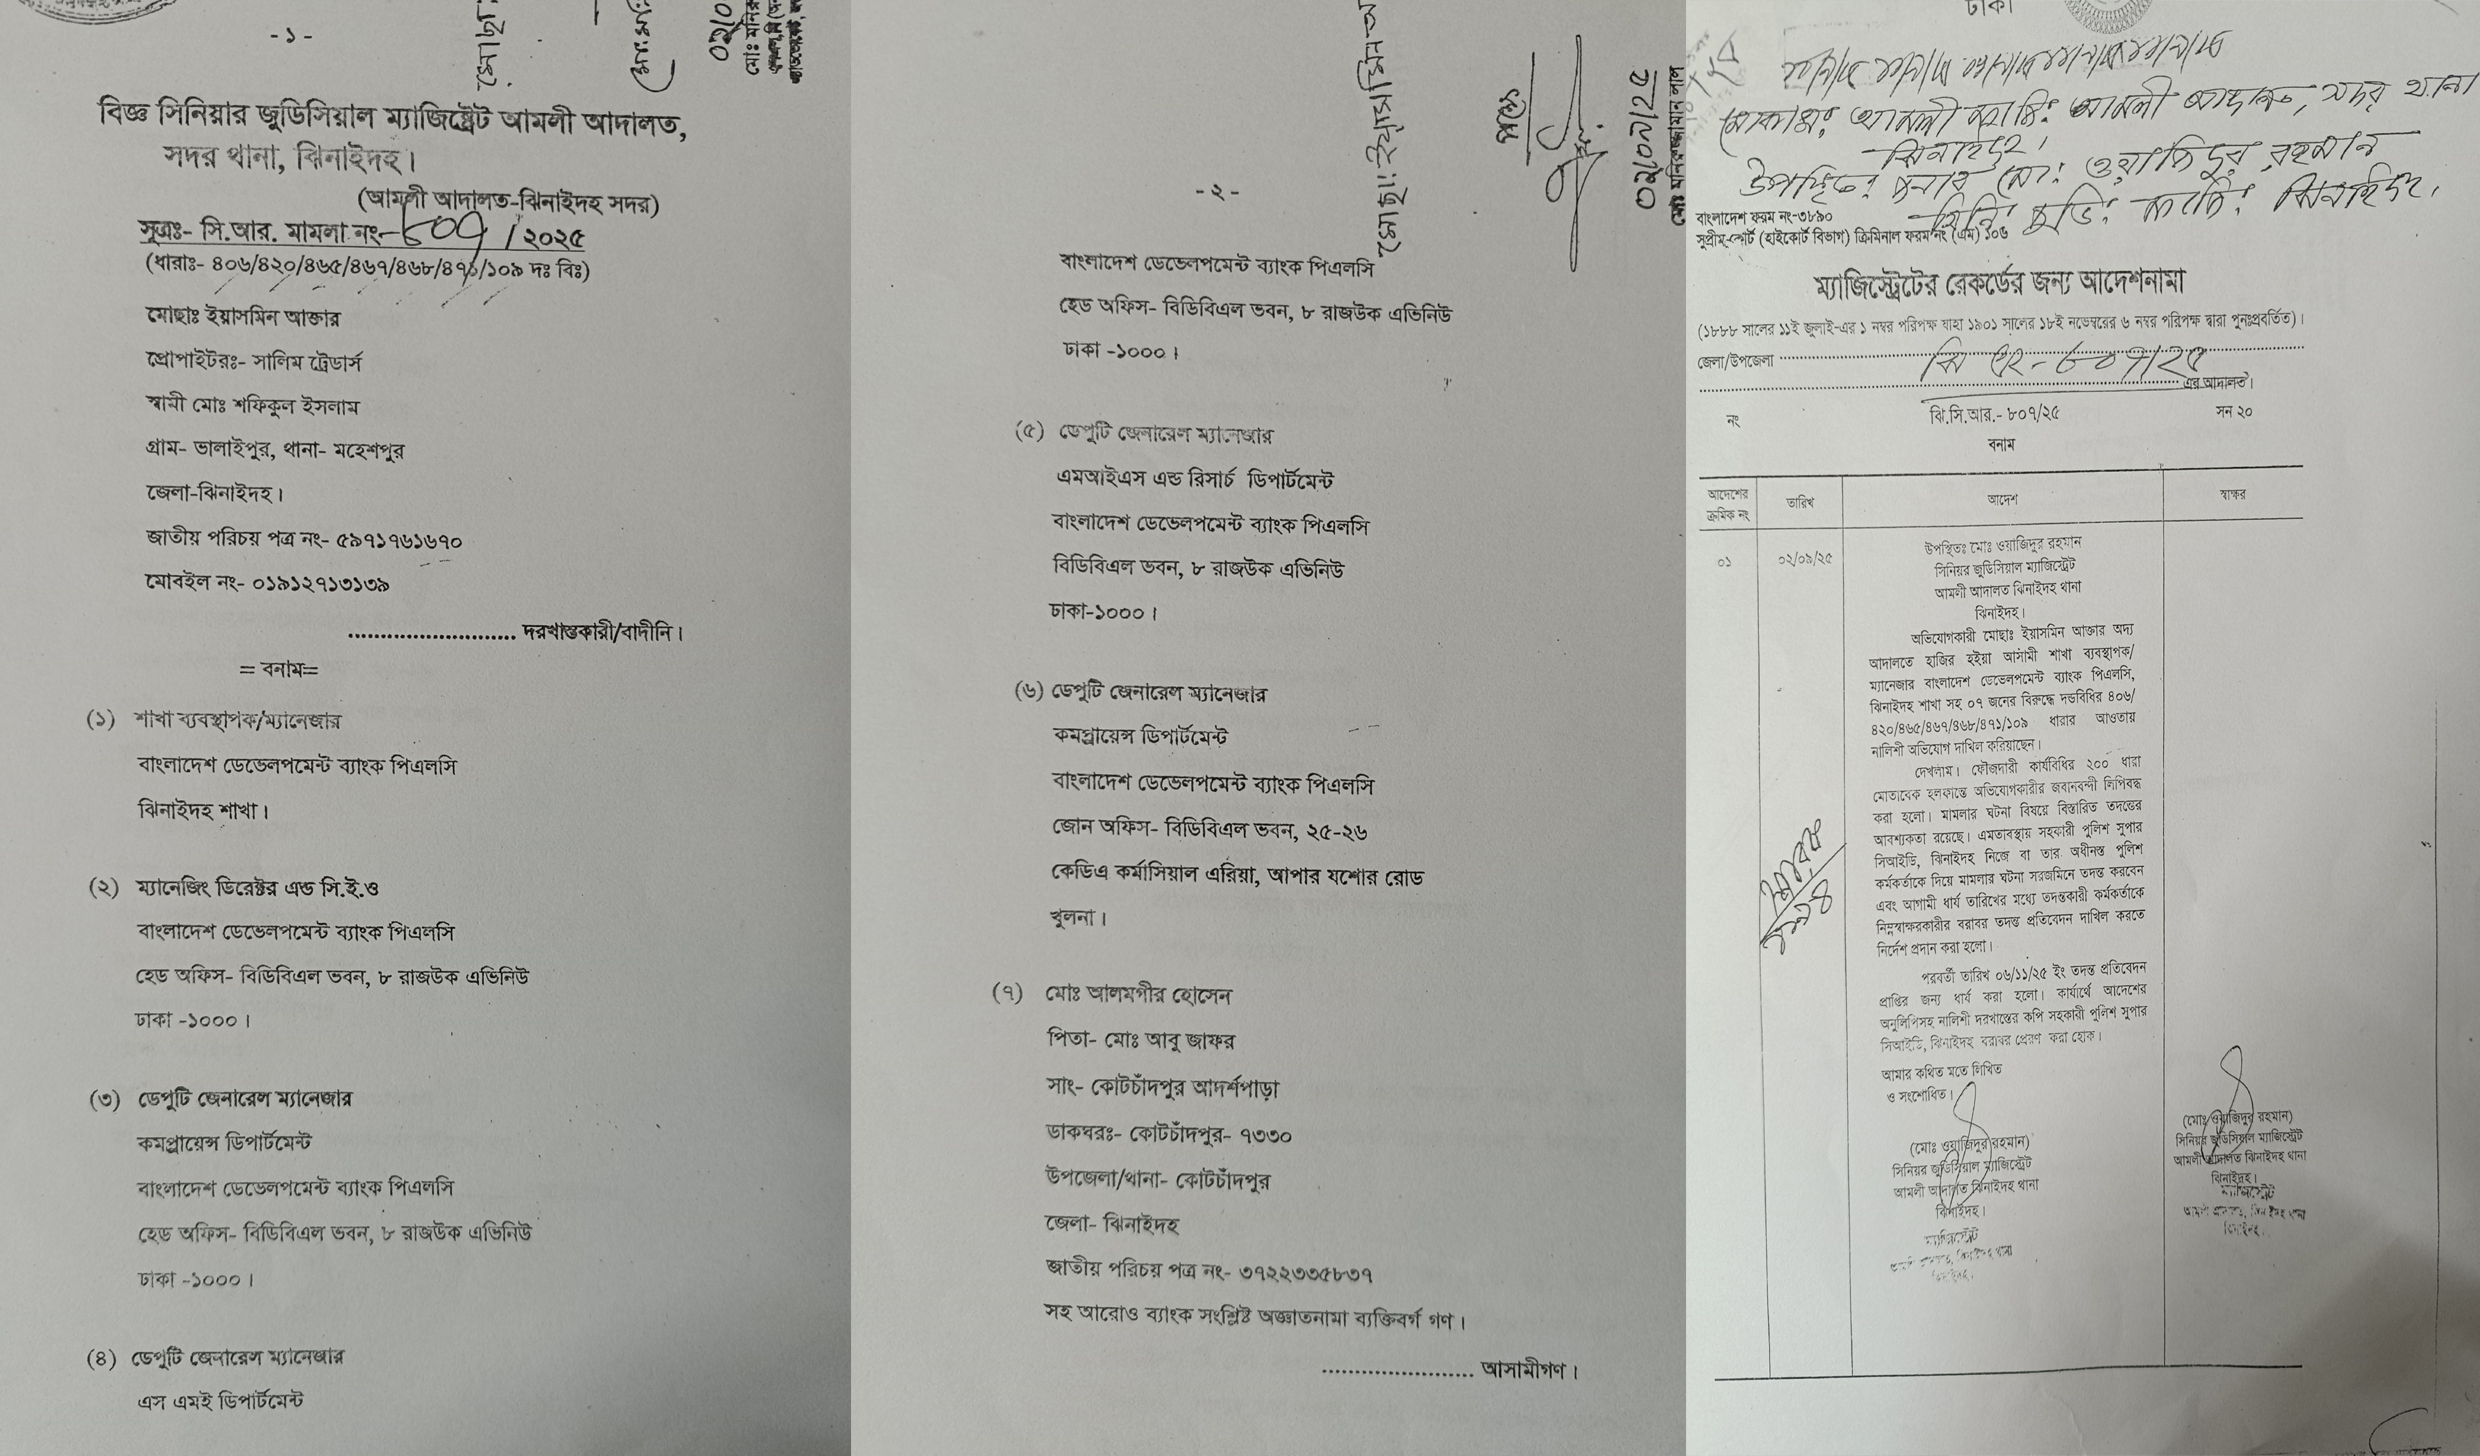 -১-
বিজ্ঞ সিনিয়ার জুডিসিয়াল ম্যাজিষ্ট্রেট আমলী আদালত,
সদর থানা, ঝিনাইদহ।
(আমলী আদালত-ঝিনাইদহ সদর)
সূত্রঃ- সি.আর. মামলা নং- ৮০৭/২০২৫
(ধারাঃ- ৪০৬/৪২০/৪৬৫/৪৬৭/৪৬৮/৪৭১/১০৯ দঃ বিঃ)
মোছাঃ ইয়াসমিন আক্তার
প্রোপাইটরঃ- সালিম ট্রেডার্স
স্বামী মোঃ শফিকুল ইসলাম
গ্রাম- ভালাইপুর, থানা- মহেশপুর
জেলা-ঝিনাইদহ।
জাতীয় পরিচয় পত্র নং- ৫৯৭১৭৬১৬৭০
মোবাইল নং- ০১৯১২৭১৩১৩৯
.......................... দরখাস্তকারী/বাদীনি।
= বনাম=
(১) শাখা ব্যবস্থাপক/ম্যানেজার
বাংলাদেশ ডেভেলপমেন্ট ব্যাংক পিএলসি
ঝিনাইদহ শাখা।
(২) ম্যানেজিং ডিরেক্টর এন্ড সি.ই.ও
বাংলাদেশ ডেভেলপমেন্ট ব্যাংক পিএলসি
হেড অফিস- বিডিবিএল ভবন, ৮ রাজউক এভিনিউ
ঢাকা -১০০০।
(৩) ডেপুটি জেনারেল ম্যানেজার
কমপ্লায়েন্স ডিপার্টমেন্ট
বাংলাদেশ ডেভেলপমেন্ট ব্যাংক পিএলসি
হেড অফিস- বিডিবিএল ভবন, ৮ রাজউক এভিনিউ
ঢাকা -১০০০।
(৪) ডেপুটি জেনারেল ম্যানেজার
এস এমই ডিপার্টমেন্ট
-২-
০২/০৯/২৫
বাংলাদেশ ডেভেলপমেন্ট ব্যাংক পিএলসি
হেড অফিস- বিডিবিএল ভবন, ৮ রাজউক এভিনিউ
ঢাকা -১০০০।
(৫) ডেপুটি জেনারেল ম্যানেজার
এমআইএস এন্ড রিসার্চ ডিপার্টমেন্ট
বাংলাদেশ ডেভেলপমেন্ট ব্যাংক পিএলসি
বিডিবিএল ভবন, ৮ রাজউক এভিনিউ
ঢাকা-১০০০।
(৬) ডেপুটি জেনারেল ম্যানেজার
কমপ্লায়েন্স ডিপার্টমেন্ট
বাংলাদেশ ডেভেলপমেন্ট ব্যাংক পিএলসি
জোন অফিস- বিডিবিএল ভবন, ২৫-২৬
কেডিএ কর্মাসিয়াল এরিয়া, আপার যশোর রোড
খুলনা।
(৭) মোঃ আলমগীর হোসেন
পিতা- মোঃ আবু জাফর
সাং- কোটচাঁদপুর আদর্শপাড়া
ডাকঘরঃ- কোটচাঁদপুর- ৭৩৩০
উপজেলা/থানা- কোটচাঁদপুর
জেলা- ঝিনাইদহ
জাতীয় পরিচয় পত্র নং- ৩৭২২৩৩৫৮৩৭
সহ আরোও ব্যাংক সংশ্লিষ্ট অজ্ঞাতনামা ব্যক্তিবর্গ গণ।
........................ আসামীগণ।
ঢাকা
আমলী আদালত, সদর থানা
ঝিনাইদহ।
মো: ওয়াজিদুর রহমান
ঝিনাইদহ।
বাংলাদেশ ফরম নং-৩৮৯০
সুপ্রীম-কোর্ট (হাইকোর্ট বিভাগ) ক্রিমিনাল ফরম নং (এম) ১০৬
ম্যাজিস্ট্রেটের রেকর্ডের জন্য আদেশনামা
(১৮৮৮ সালের ১১ই জুলাই-এর ১ নম্বর পরিপক্ষ যাহা ১৯০১ সালের ১৮ই নভেম্বরের ৬ নম্বর পরিপক্ষ দ্বারা পুনঃপ্রবর্তিত)।
জেলা/উপজেলা
এর আদালত।
নং ঝি.সি.আর.- ৮০৭/২৫ সন ২০
বনাম
আদেশের ক্রমিক নং তারিখ আদেশ স্বাক্ষর
০১ ০২/০৯/২৫ উপস্থিতঃ মোঃ ওয়াজিদুর রহমান
সিনিয়র জুডিসিয়াল ম্যাজিস্ট্রেট
আমলী আদালত ঝিনাইদহ থানা
ঝিনাইদহ।
অভিযোগকারী মোছাঃ ইয়াসমিন আক্তার অদ্য
আদালতে হাজির হইয়া আসামী শাখা ব্যবস্থাপক/
ম্যানেজার বাংলাদেশ ডেভেলপমেন্ট ব্যাংক পিএলসি,
ঝিনাইদহ শাখা সহ ০৭ জনের বিরুদ্ধে দন্ডবিধির ৪০৬/
৪২০/৪৬৫/৪৬৭/৪৬৮/৪৭১/১০৯ ধারার আওতায়
নালিশী অভিযোগ দাখিল করিয়াছেন।
দেখলাম। ফৌজদারী কার্যবিধির ২০০ ধারা
মোতাবেক হলফান্তে অভিযোগকারীর জবানবন্দী লিপিবদ্ধ
করা হলো। মামলার ঘটনা বিষয়ে বিস্তারিত তদন্তের
আবশ্যকতা রয়েছে। এমতাবস্থায় সহকারী পুলিশ সুপার
সিআইডি, ঝিনাইদহ নিজে বা তার অধীনস্ত পুলিশ
কর্মকর্তাকে দিয়ে মামলার ঘটনা সরজমিনে তদন্ত করবেন
এবং আগামী ধার্য তারিখের মধ্যে তদন্তকারী কর্মকর্তাকে
নিম্নস্বাক্ষরকারীর বরাবর তদন্ত প্রতিবেদন দাখিল করতে
নির্দেশ প্রদান করা হলো।
পরবর্তী তারিখ ০৬/১১/২৫ ইং তদন্ত প্রতিবেদন
প্রাপ্তির জন্য ধার্য করা হলো। কার্যার্থে আদেশের
অনুলিপিসহ নালিশী দরখাস্তের কপি সহকারী পুলিশ সুপার
সিআইডি, ঝিনাইদহ বরাবর প্রেরণ করা হোক।
আমার কথিত মতে লিখিত
ও সংশোধিত।
(মোঃ ওয়াজিদুর রহমান)
সিনিয়র জুডিসিয়াল ম্যাজিস্ট্রেট
আমলী আদালত ঝিনাইদহ থানা
ঝিনাইদহ।
ম্যাজিস্ট্রেট
(মোঃ ওয়াজিদুর রহমান)
সিনিয়র জুডিসিয়াল ম্যাজিস্ট্রেট
আমলী আদালত ঝিনাইদহ থানা
ঝিনাইদহ।
ম্যাজিস্ট্রেট